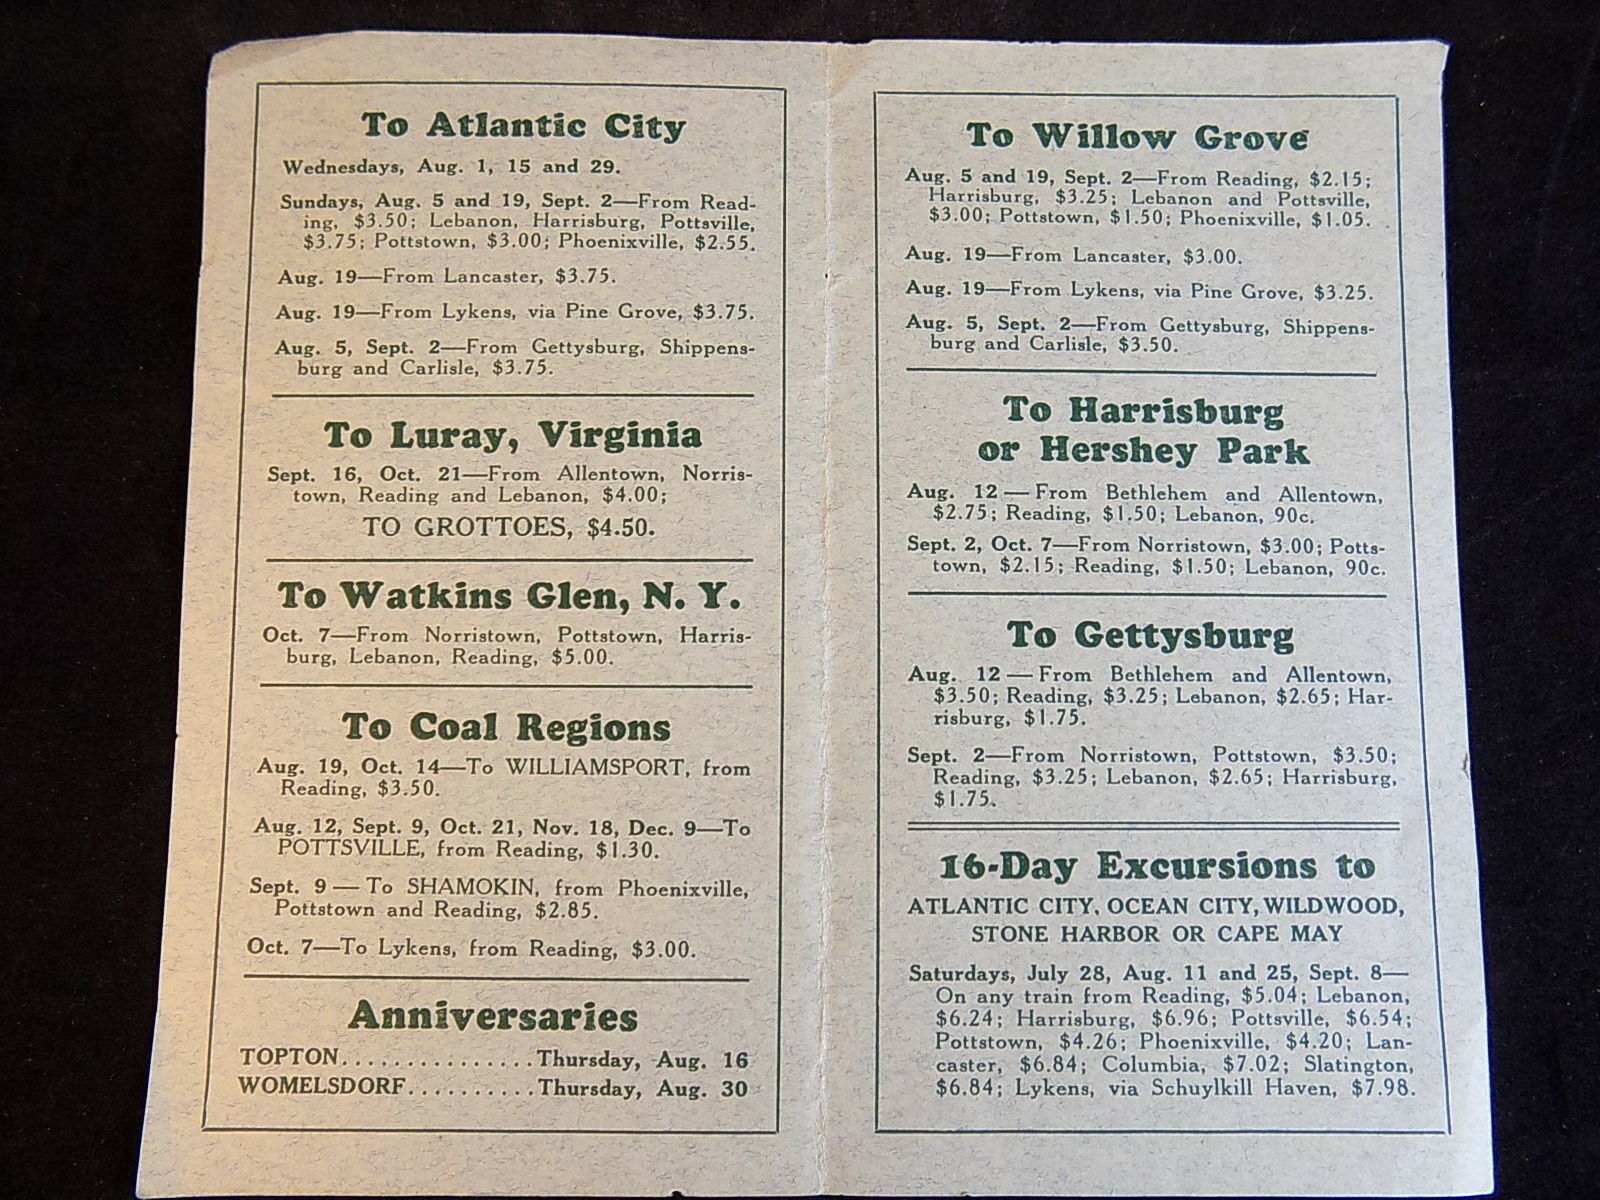 To Atlantic City
Wednesdays, Aug. 1, 15 and 29.
Sundays, Aug. 5 and 19, Sept. 2—From Read-
ing, $3.50; Lebanon, Harrisburg, Pottsville,
$3.75; Pottstown, $3.00; Phoenixville, $2.55.
Aug. 19—From Lancaster, $3.75.
Aug. 19—From Lykens, via Pine Grove, $3.75.
Aug. 5, Sept. 2—From Gettysburg, Shippens-
burg and Carlisle, $3.75.
To Luray, Virginia
Sept. 16, Oct. 21—From Allentown, Norris-
town, Reading and Lebanon, $4.00;
TO GROTTOES, $4.50.
To Watkins Glen, N. Y.
Oct. 7—From Norristown, Pottstown, Harris-
burg, Lebanon, Reading, $5.00.
To Coal Regions
Aug. 19, Oct. 14—To WILLIAMSPORT, from
Reading, $3.50.
Aug. 12, Sept. 9, Oct. 21, Nov. 18, Dec. 9—To
POTTSVILLE, from Reading, $1.30.
Sept. 9 — To SHAMOKIN, from Phoenixville,
Pottstown and Reading, $2.85.
Oct. 7—To Lykens, from Reading, $3.00.
Anniversaries
TOPTON...............Thursday, Aug. 16
WOMELSDORF..........Thursday, Aug. 30
To Willow Grove
Aug. 5 and 19, Sept. 2—From Reading, $2.15;
Harrisburg, $3.25; Lebanon and Pottsville,
$3.00; Pottstown, $1.50; Phoenixville, $1.05.
Aug. 19—From Lancaster, $3.00.
Aug. 19—From Lykens, via Pine Grove, $3.25.
Aug. 5, Sept. 2—From Gettysburg, Shippens-
burg and Carlisle, $3.50.
To Harrisburg
or Hershey Park
Aug. 12 — From Bethlehem and Allentown,
$2.75; Reading, $1.50; Lebanon, 90c.
Sept. 2, Oct. 7—From Norristown, $3.00; Potts-
town, $2.15; Reading, $1.50; Lebanon, 90c.
To Gettysburg
Aug. 12 — From Bethlehem and Allentown,
$3.50; Reading, $3.25; Lebanon, $2.65; Har-
risburg, $1.75.
Sept. 2—From Norristown, Pottstown, $3.50;
Reading, $3.25; Lebanon, $2.65; Harrisburg,
$1.75.
16-Day Excursions to
ATLANTIC CITY, OCEAN CITY, WILDWOOD,
STONE HARBOR OR CAPE MAY
Saturdays, July 28, Aug. 11 and 25, Sept. 8—
On any train from Reading, $5.04; Lebanon,
$6.24; Harrisburg, $6.96; Pottsville, $6.54;
Pottstown, $4.26; Phoenixville, $4.20; Lan-
caster, $6.84; Columbia, $7.02; Slatington,
$6.84; Lykens, via Schuylkill Haven, $7.98.